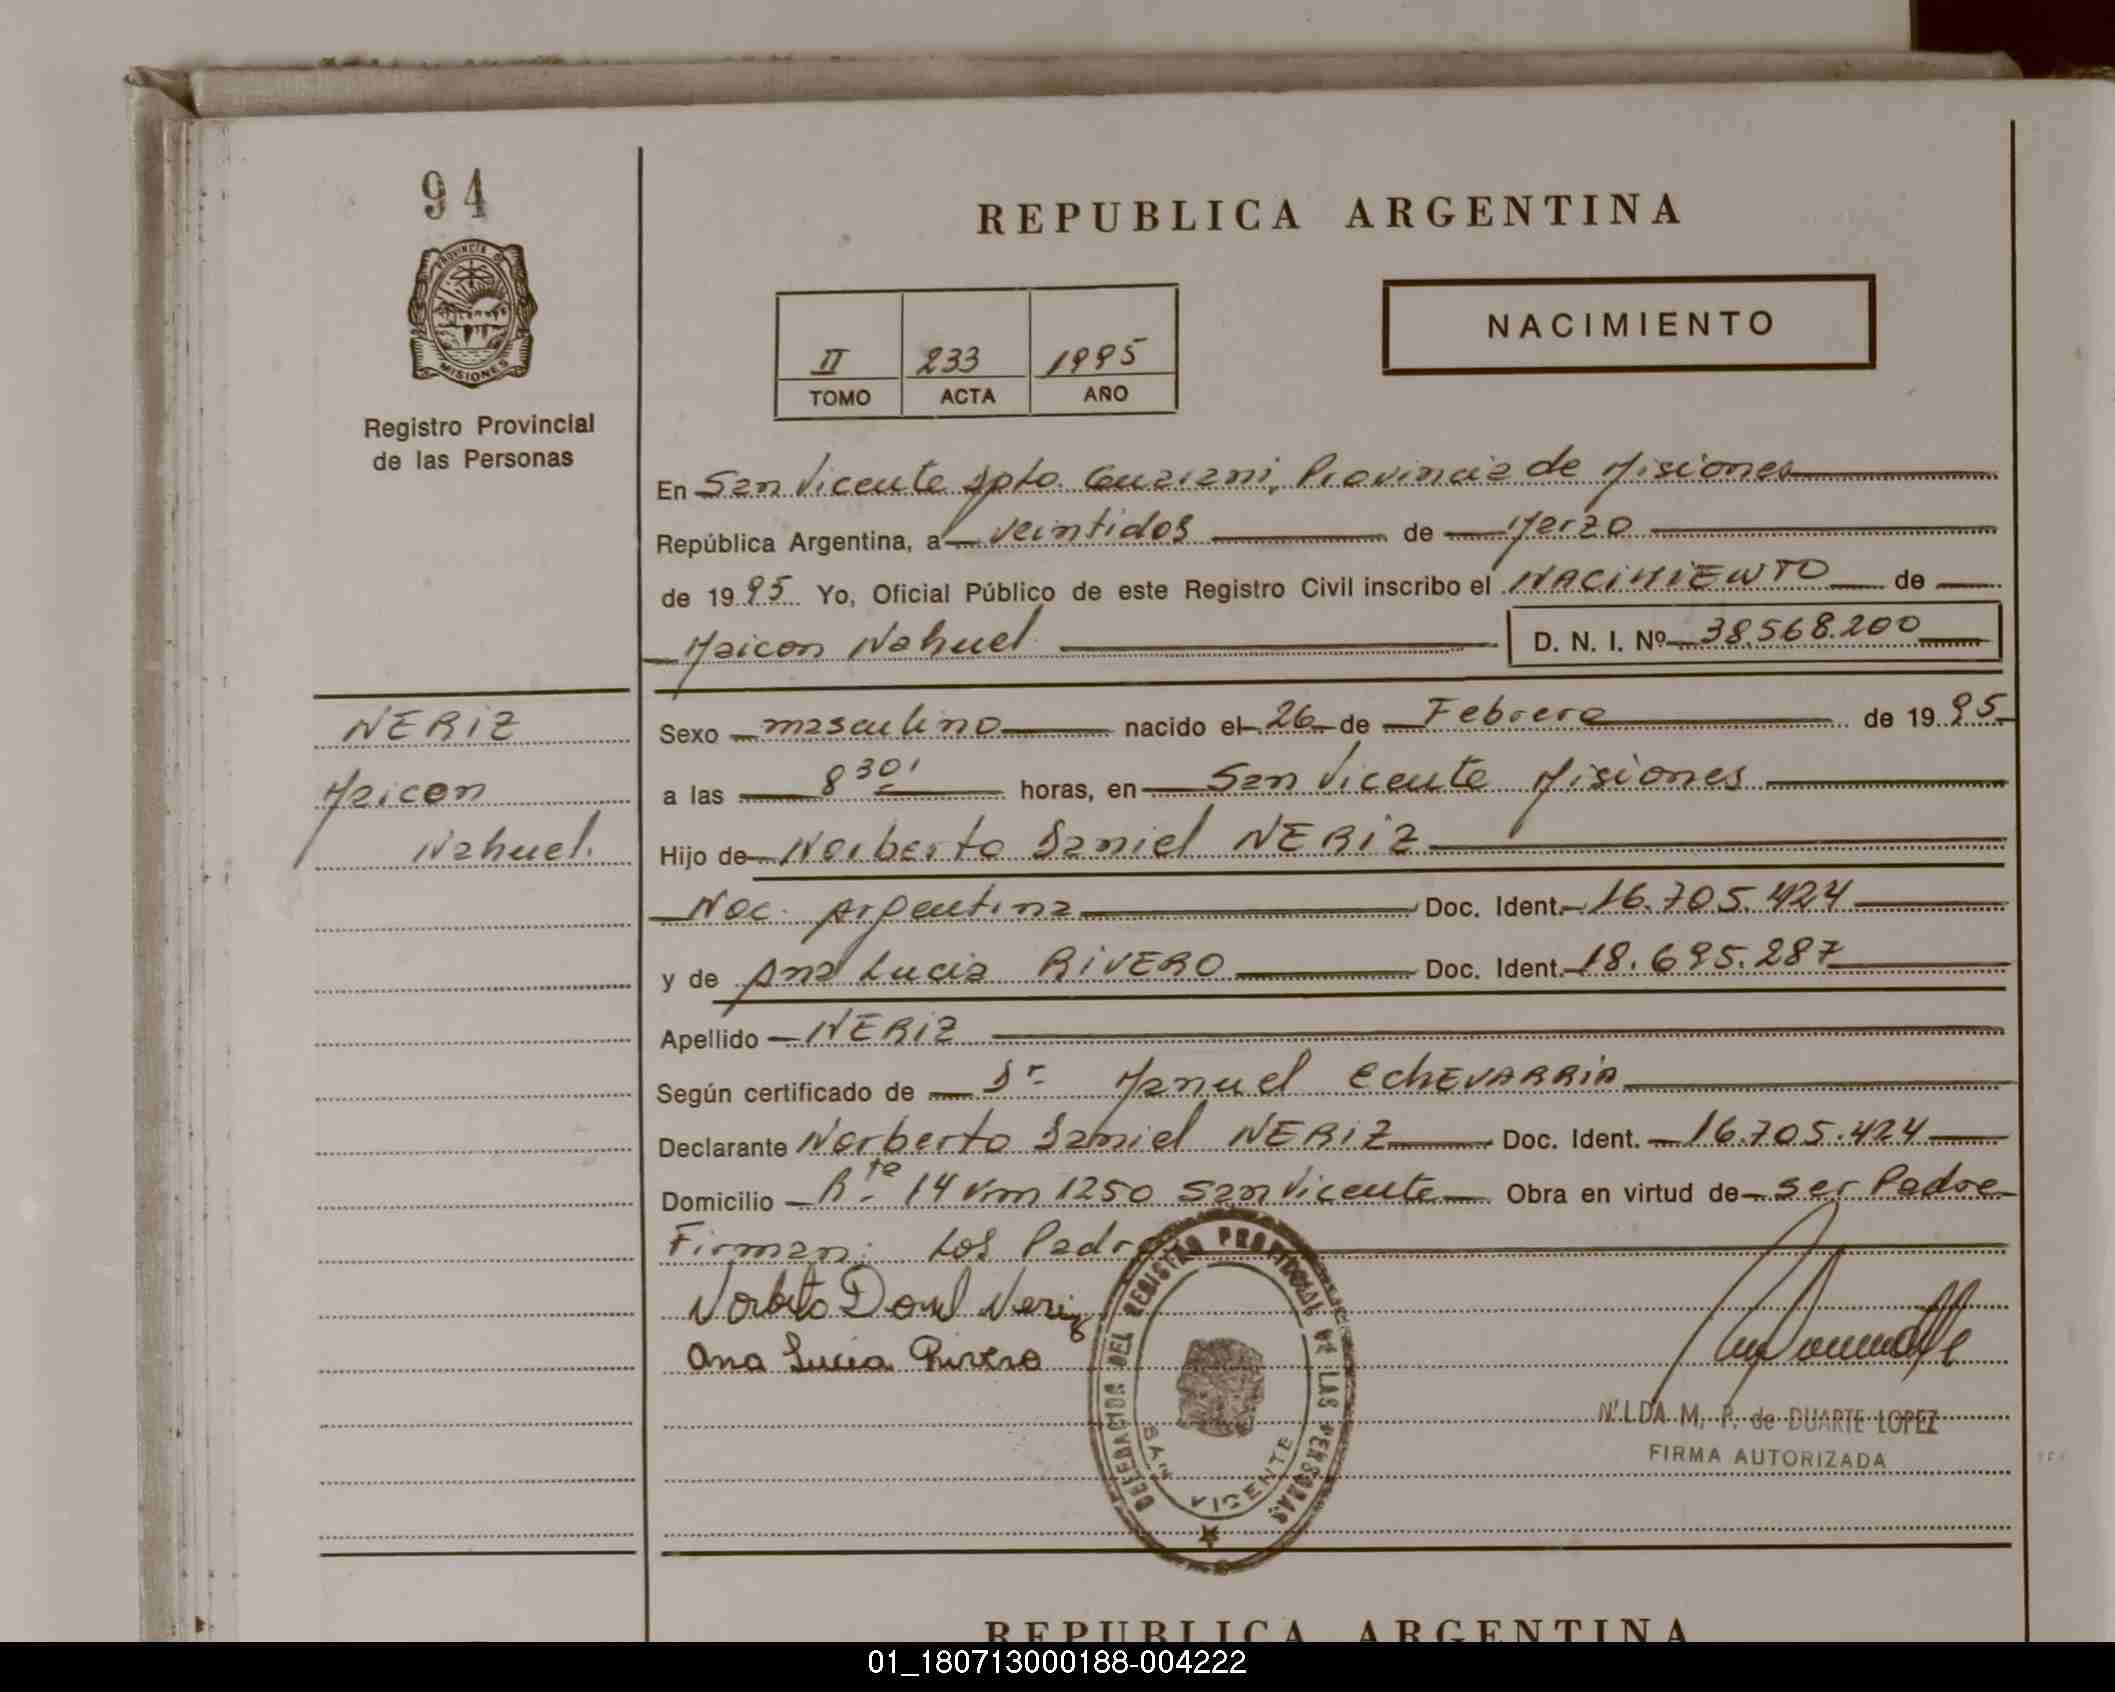 94
PROVINCIA DE
MISIONES
Registro Provincial
de las Personas
REPUBLICA ARGENTINA
II 233 1995
TOMO ACTA AÑO
NACIMIENTO
En San Vicente Dpto. Guarani, Provincia de Misiones
República Argentina, a veintidos de Marzo
de 1995 Yo, Oficial Público de este Registro Civil inscribo el NACIMIENTO de
Maicon Nahuel D. N. I. Nº 38.568.200
NERIZ
Maicon
Nahuel.
Sexo masculino nacido el 26 de Febrero de 1995
a las 8 30' horas, en San Vicente Misiones
Hijo de Norberto Daniel NERIZ
Nac. Argentina Doc. Ident. 16.705.424
y de Ana Lucia RIVERO Doc. Ident. 18.695.287
Apellido NERIZ
Según certificado de Dr Manuel EcheVARRIA
Declarante Norberto Daniel NERIZ Doc. Ident. 16.705.424
Domicilio Rta 14 Km 1250 San Vicente Obra en virtud de ser Padre
Firman: Los Padres
Norberto Daniel Neriz
Ana Lucia Rivero
DELEGACION DEL REGISTRO PROVINCIAL DE LAS PERSONAS
SAN VICENTE
NILDA M. P. de DUARTE LOPEZ
FIRMA AUTORIZADA
REPUBLICA ARGENTINA
01_180713000188-004222